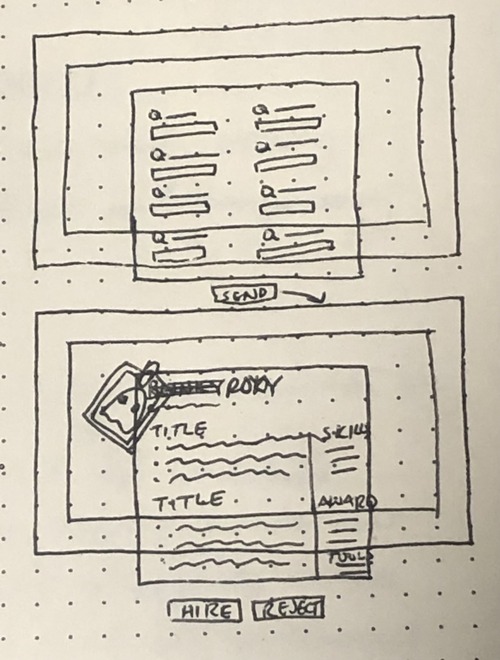 Q Q
Q Q
Q Q
Q Q
SEND
RORY
TITLE
SKILLS
TITLE
AWARD
TOOLS
HIRE REJECT